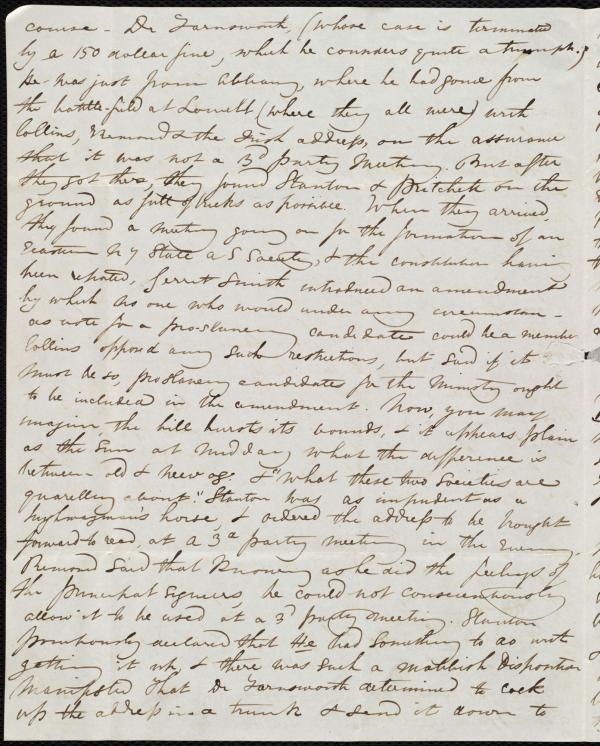 course - Dr Farnsworth, (whose case is terminated
by a 150 dollar fine, which he considers quite a triumph.)
He was just from Albany, where he had gone from
the battle-field at Lowell (where they all were) with
Collins, Remond & the Irish address, on the assurance
that it was not a 3d party Meeting. But after
they got there, they found Stanton & Pritchett on the
ground as full of as possible. When they arrived,
they found a meeting going on for the formation of an
Eastern N Y State A S Society, & the constitution having
been reported, Gerrit Smith introduced an amendment
by which no one who would under any circumstan-
ces vote for a pro-slavery candidate could be a member
Collins opposed any such restrictions, but said if it
must be so, proslavery candidates for the Ministry ought
to be included in the amendment. Now, you may
imagine the bill bursts its bounds, & it appears plain
as the sun at midday what the difference is
between old & new og: & "what these two Societies are
quarelling about." Stanton was as impudent as a
highwayman's horse, & ordered the address to be brought
forward & read, at a 3d party meeting in the Evening.
Remond said that knowing as he did the feelings of
the principal signers, he could not conscienciously
allow it to be used at a 3d party meeting. Stanton
declared that He had something to do with
getting it up, & there was such a mobbish disposition
manifested that Dr Farnsworth determined to lock
up the address in a trunk & send it down to